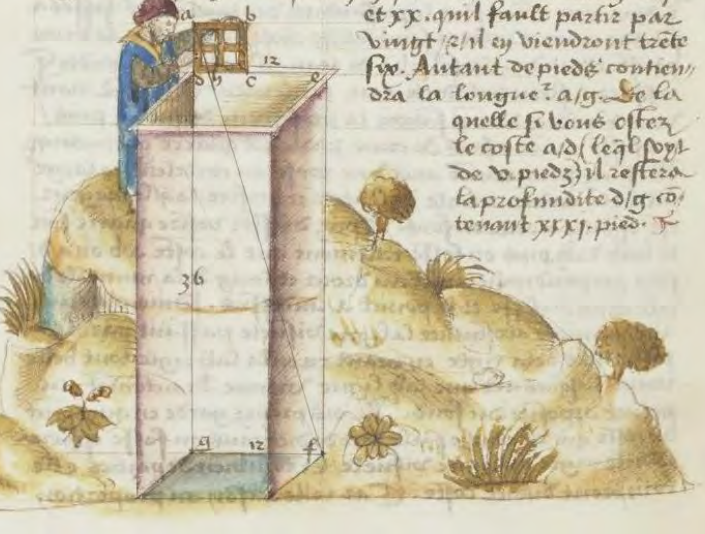 et xx. quil fault partir par
vingt /2/ il en viendront trẽte
six. Autant de pieds contien,,
dra la longueᷣ. a/g. De la
quelle si vous ostez
le coste a/d (leq̃l soyt
de v. piedz) il restera
la profundite d/g cõ,
tenant xxxi. pied.
a b
d h c 12 e
36
g 12 f